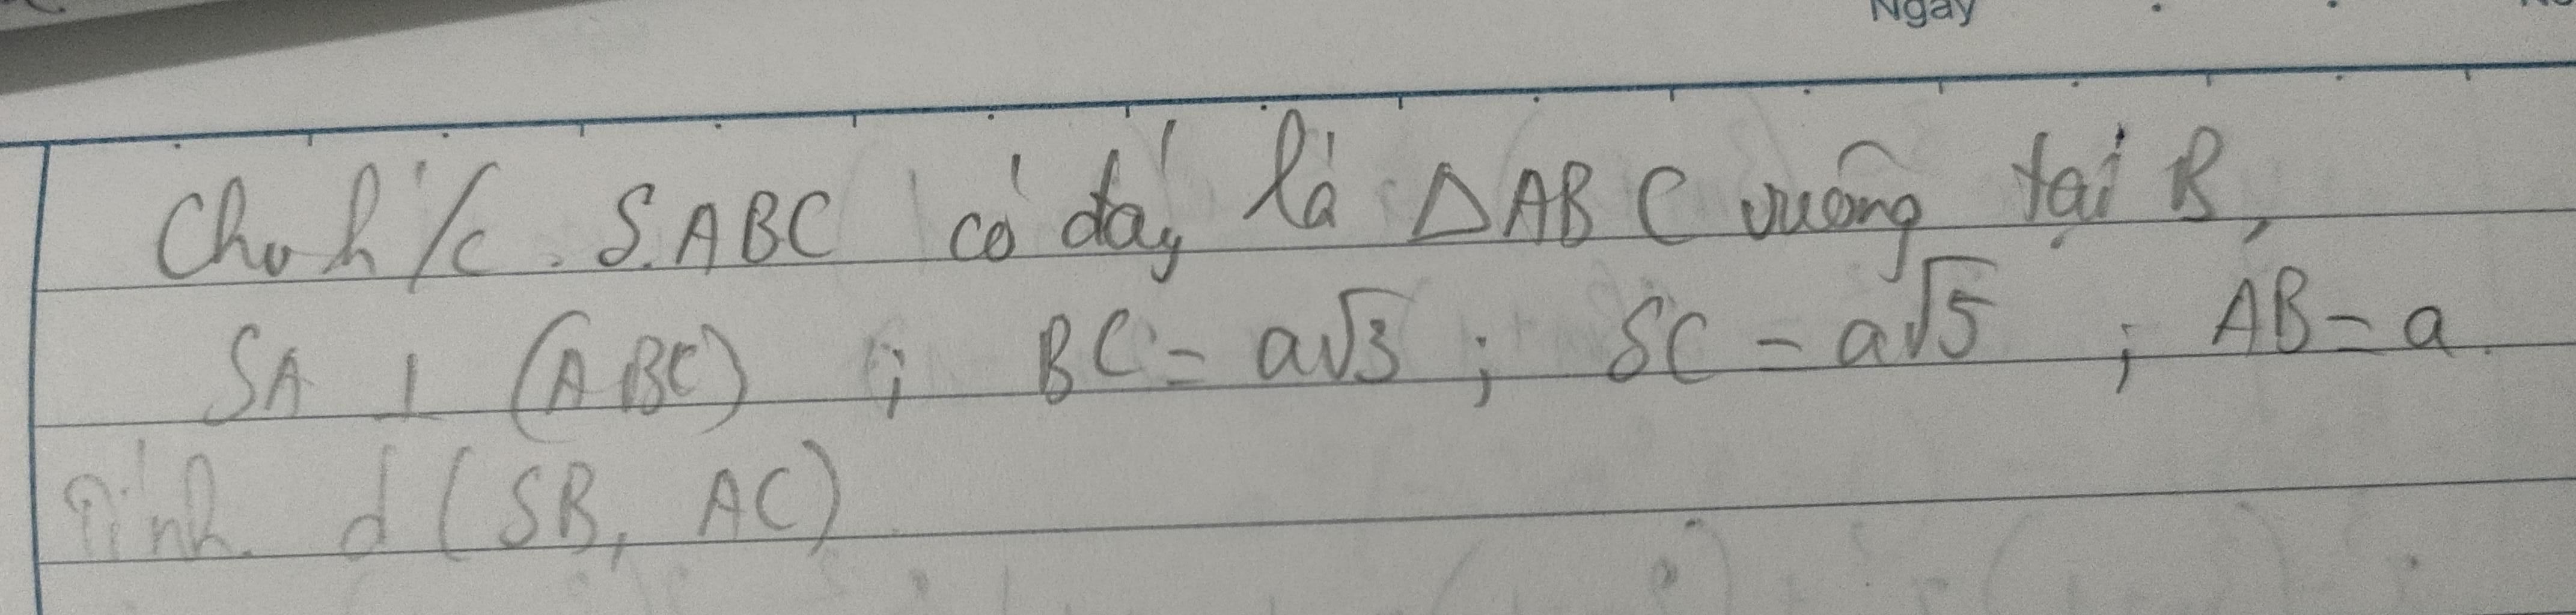 Ngày
Cho h/c. S.ABC có đáy là △ABC vuông tại B,
SA ⊥ (ABC) ; BC = a√3 ; SC = a√5 ; AB = a.
Tính d(SB, AC)